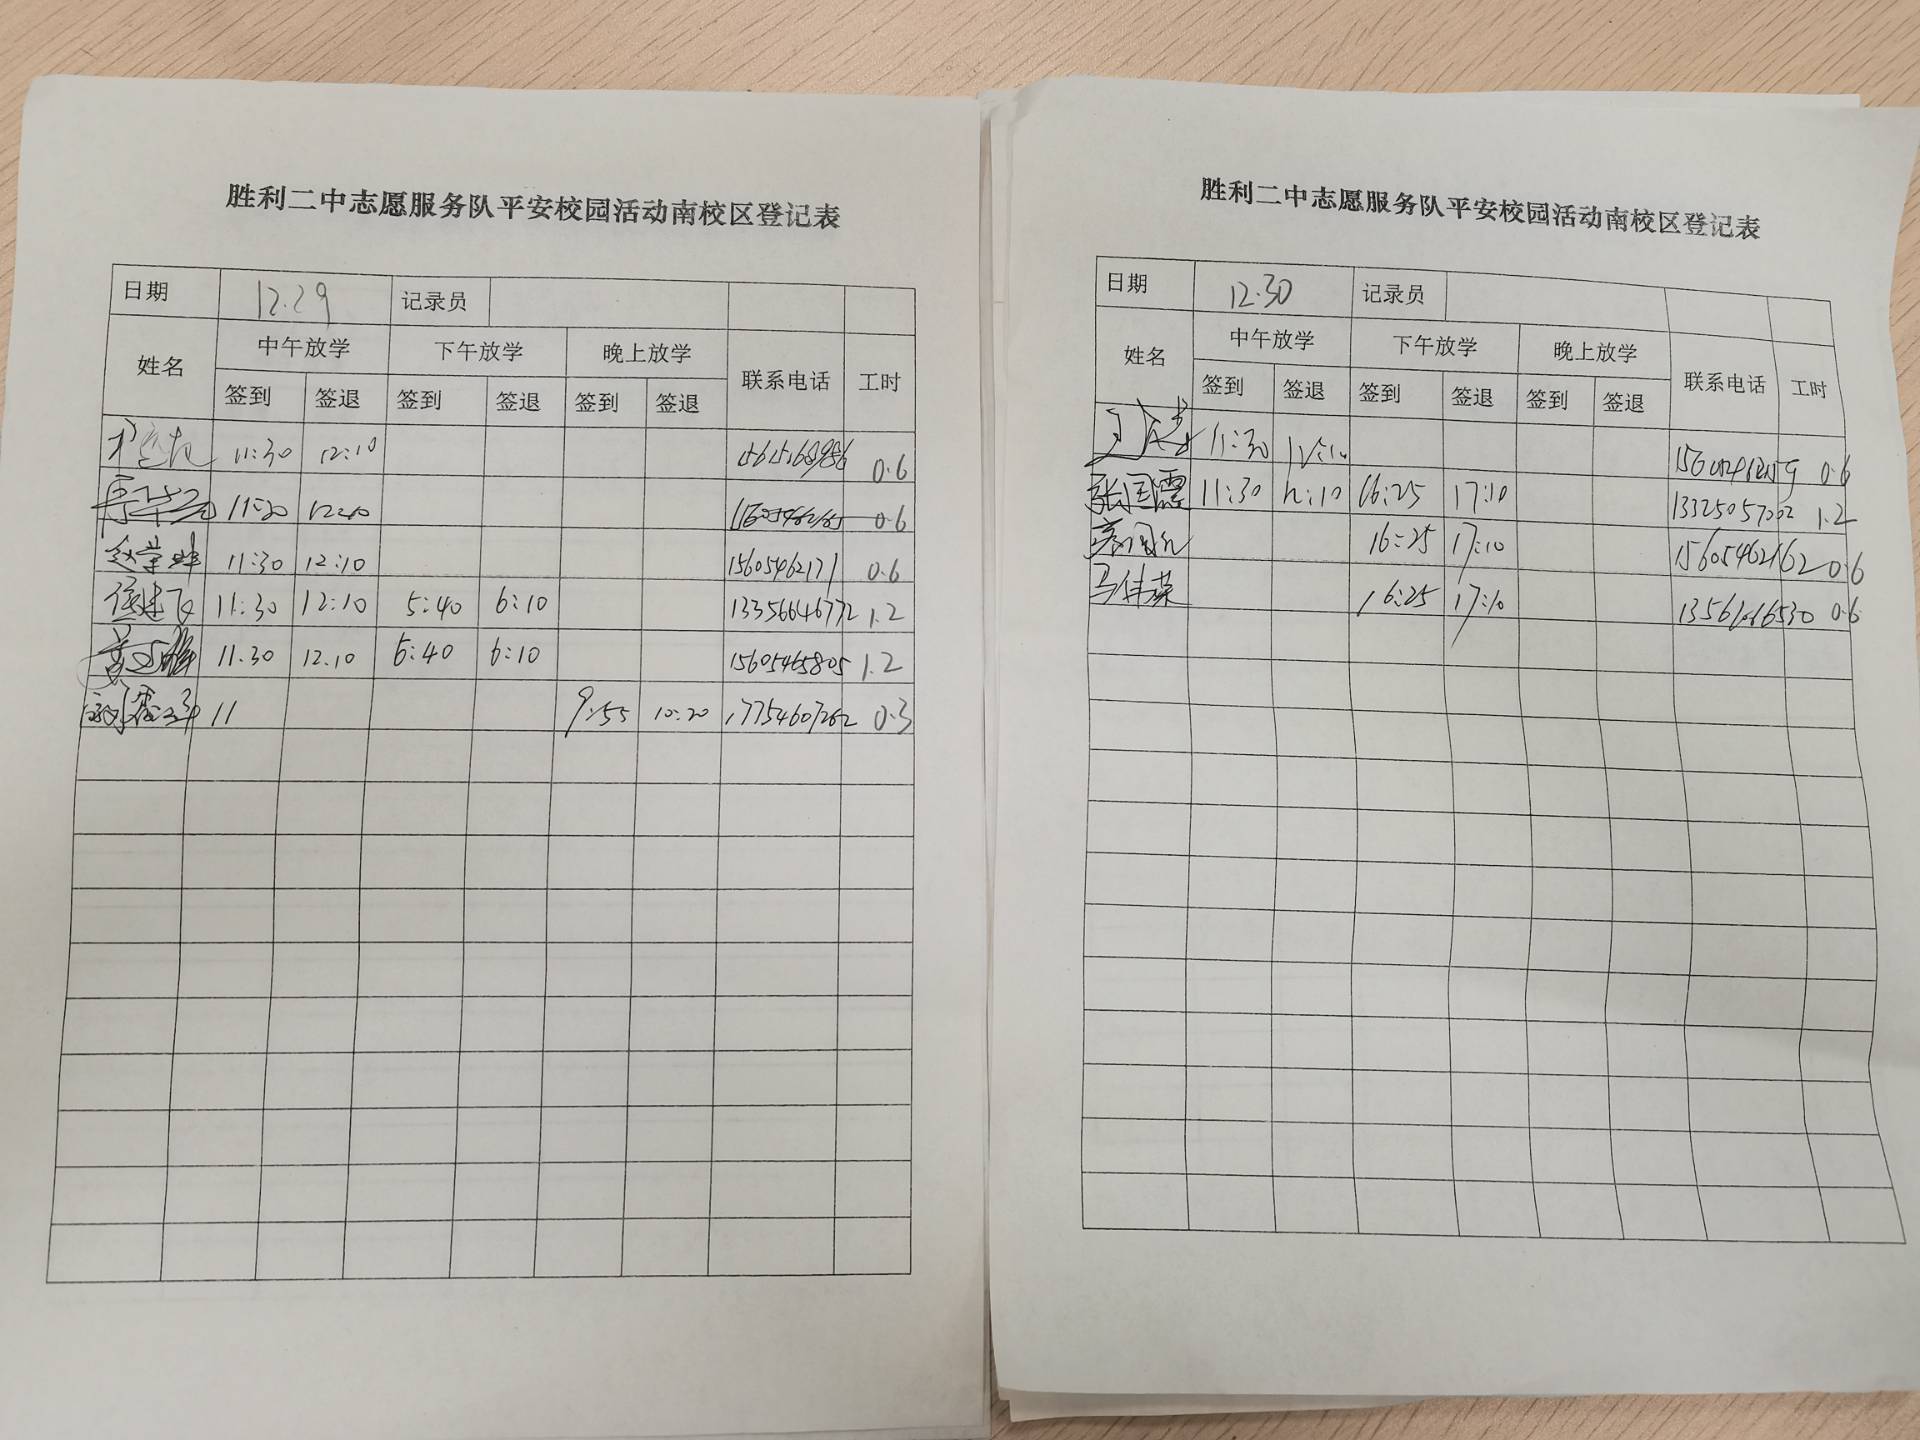 胜利二中志愿服务队平安校园活动南校区登记表
日期 12.29 记录员
姓名 中午放学 下午放学 晚上放学 联系电话 工时
签到 签退 签到 签退 签到 签退
11:30 12:10 0.6
11:30 12:10 0.6
赵荣 11:30 12:10 15605462171 0.6
建飞 11:30 12:10 5:40 6:10 13356646772 1.2
11.30 12.10 5:40 6:10 15605465805 1.2
11 9:55 10:20 17754607262 0.3
胜利二中志愿服务队平安校园活动南校区登记表
日期 12.30 记录员
姓名 中午放学 下午放学 晚上放学 联系电话 工时
签到 签退 签到 签退 签到 签退
11:30 12:10 0.6
张国霞 11:30 12:10 16:25 17:10 13325057202 1.2
16:25 17:10 15605462162 0.6
马伟荣 16:25 17:10 0.6